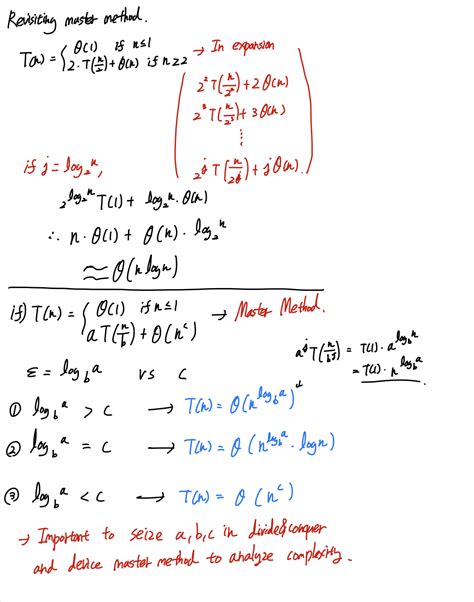 Revisiting master method.
T(n) = { θ(1) if n≤1
2·T(n/2)+θ(n) if n≥2
→ In expansion
2² T(n/2²) + 2θ(n)
2³ T(n/2³) + 3θ(n)
⋮
2^j T(n/2^j) + jθ(n).
if j = log₂n,
2^(log₂n) T(1) + log₂n · θ(n)
∴ n·θ(1) + θ(n)·log₂n
≈ θ(n logn)
if) T(n) = { θ(1) if n≤1
aT(n/b) + θ(n^c)
→ Master Method.
a^j T(n/b^j) = T(1)·a^(log_b n)
= T(1)·n^(log_b a)
ε = log_b a vs c
① log_b a > c → T(n) = θ(n^(log_b a))
② log_b a = c → T(n) = θ(n^(log_b a)·logn)
③ log_b a < c → T(n) = θ(n^c)
→ Important to seize a,b,c in divide&conquer
and device master method to analyze complexity.